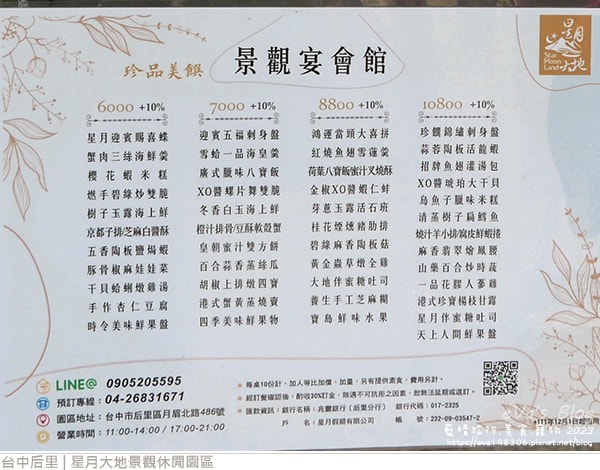 景觀宴會館
珍品美饌
星月大地
Star Moon Land
6000 +10%
星月迎賓賜喜蝶
蟹肉三絲海鮮羹
櫻花蝦米糕
燃手碧綠炒雙脆
樹子玉露海上鮮
京都子排/芝麻白醬酥
五香陶板鹽焗蝦
豚骨椒麻娃娃菜
干貝蛤蜊燉雞湯
手作杏仁豆腐
時令美味鮮果盤
7000 +10%
迎賓五福刺身盤
雪蛤一品海皇羹
廣式臘味八寶飯
XO醬螺片舞雙脆
冬香白玉海上鮮
橙汁排骨/豆酥軟殼蟹
皇朝蜜汁雙方餅
百合蒜香蒸絲瓜
胡椒上排燉四寶
港式蟹黃蒸燒賣
四季美味鮮果物
8800 +10%
鴻運當頭大喜拼
紅燒魚翅雪蓮羹
荷葉八寶飯蜜汁叉燒酥
金椒XO醬蝦仁蚌
芽蔥玉露活石斑
桂花煙燻豬肋排
碧綠麻香陶板菇
黃金蟲草燉全雞
大地伴蜜糖吐司
養生手工芝麻糊
寶島鮮味水果
10800 +10%
珍饌錦繡刺身盤
蒜蓉陶板活龍蝦
招牌魚翅灌湯包
XO醬琥珀大干貝
烏魚子臘味米糕
清蒸樹子扁鱈魚
燒汁羊小排/腐皮鮮蝦捲
麻香翡翠燴鳳腰
山藥百合炒時蔬
一品花膠人蔘雞
港式珍寶楊枝甘露
星月伴蜜糖吐司
天上人間鮮果盤
LINE@ 0905205595
預訂專線: 04-26831671
園區地址: 台中市后里區月眉北路486號
營業時間: 11:00-14:00 / 17:00-21:00
● 每桌10份計、加人等比加價、加量,另有提供素食,費用另計。
● 經訂餐確認後,酌收30%訂金,除遇不可抗拒之因素,恕無法延期或退訂。
● 匯款資訊:銀行名稱:兆豐銀行(后里分行) 銀行代碼:017-2325
戶名:星月假期有限公司 帳號:232-09-03547-2
eva's Blog
藍晴旅行.美食.寵物 2023
https://eva198306.pixnet.net/blog
台中后里 | 星月大地景觀休閒園區